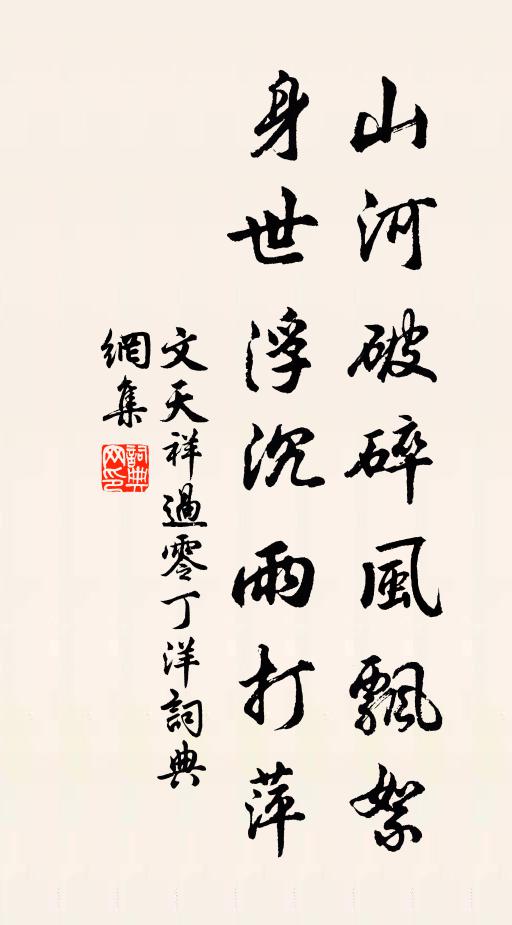 山河破碎風飄絮
身世浮沉雨打萍
文天祥過零丁洋詞典
網集
詞典
网印